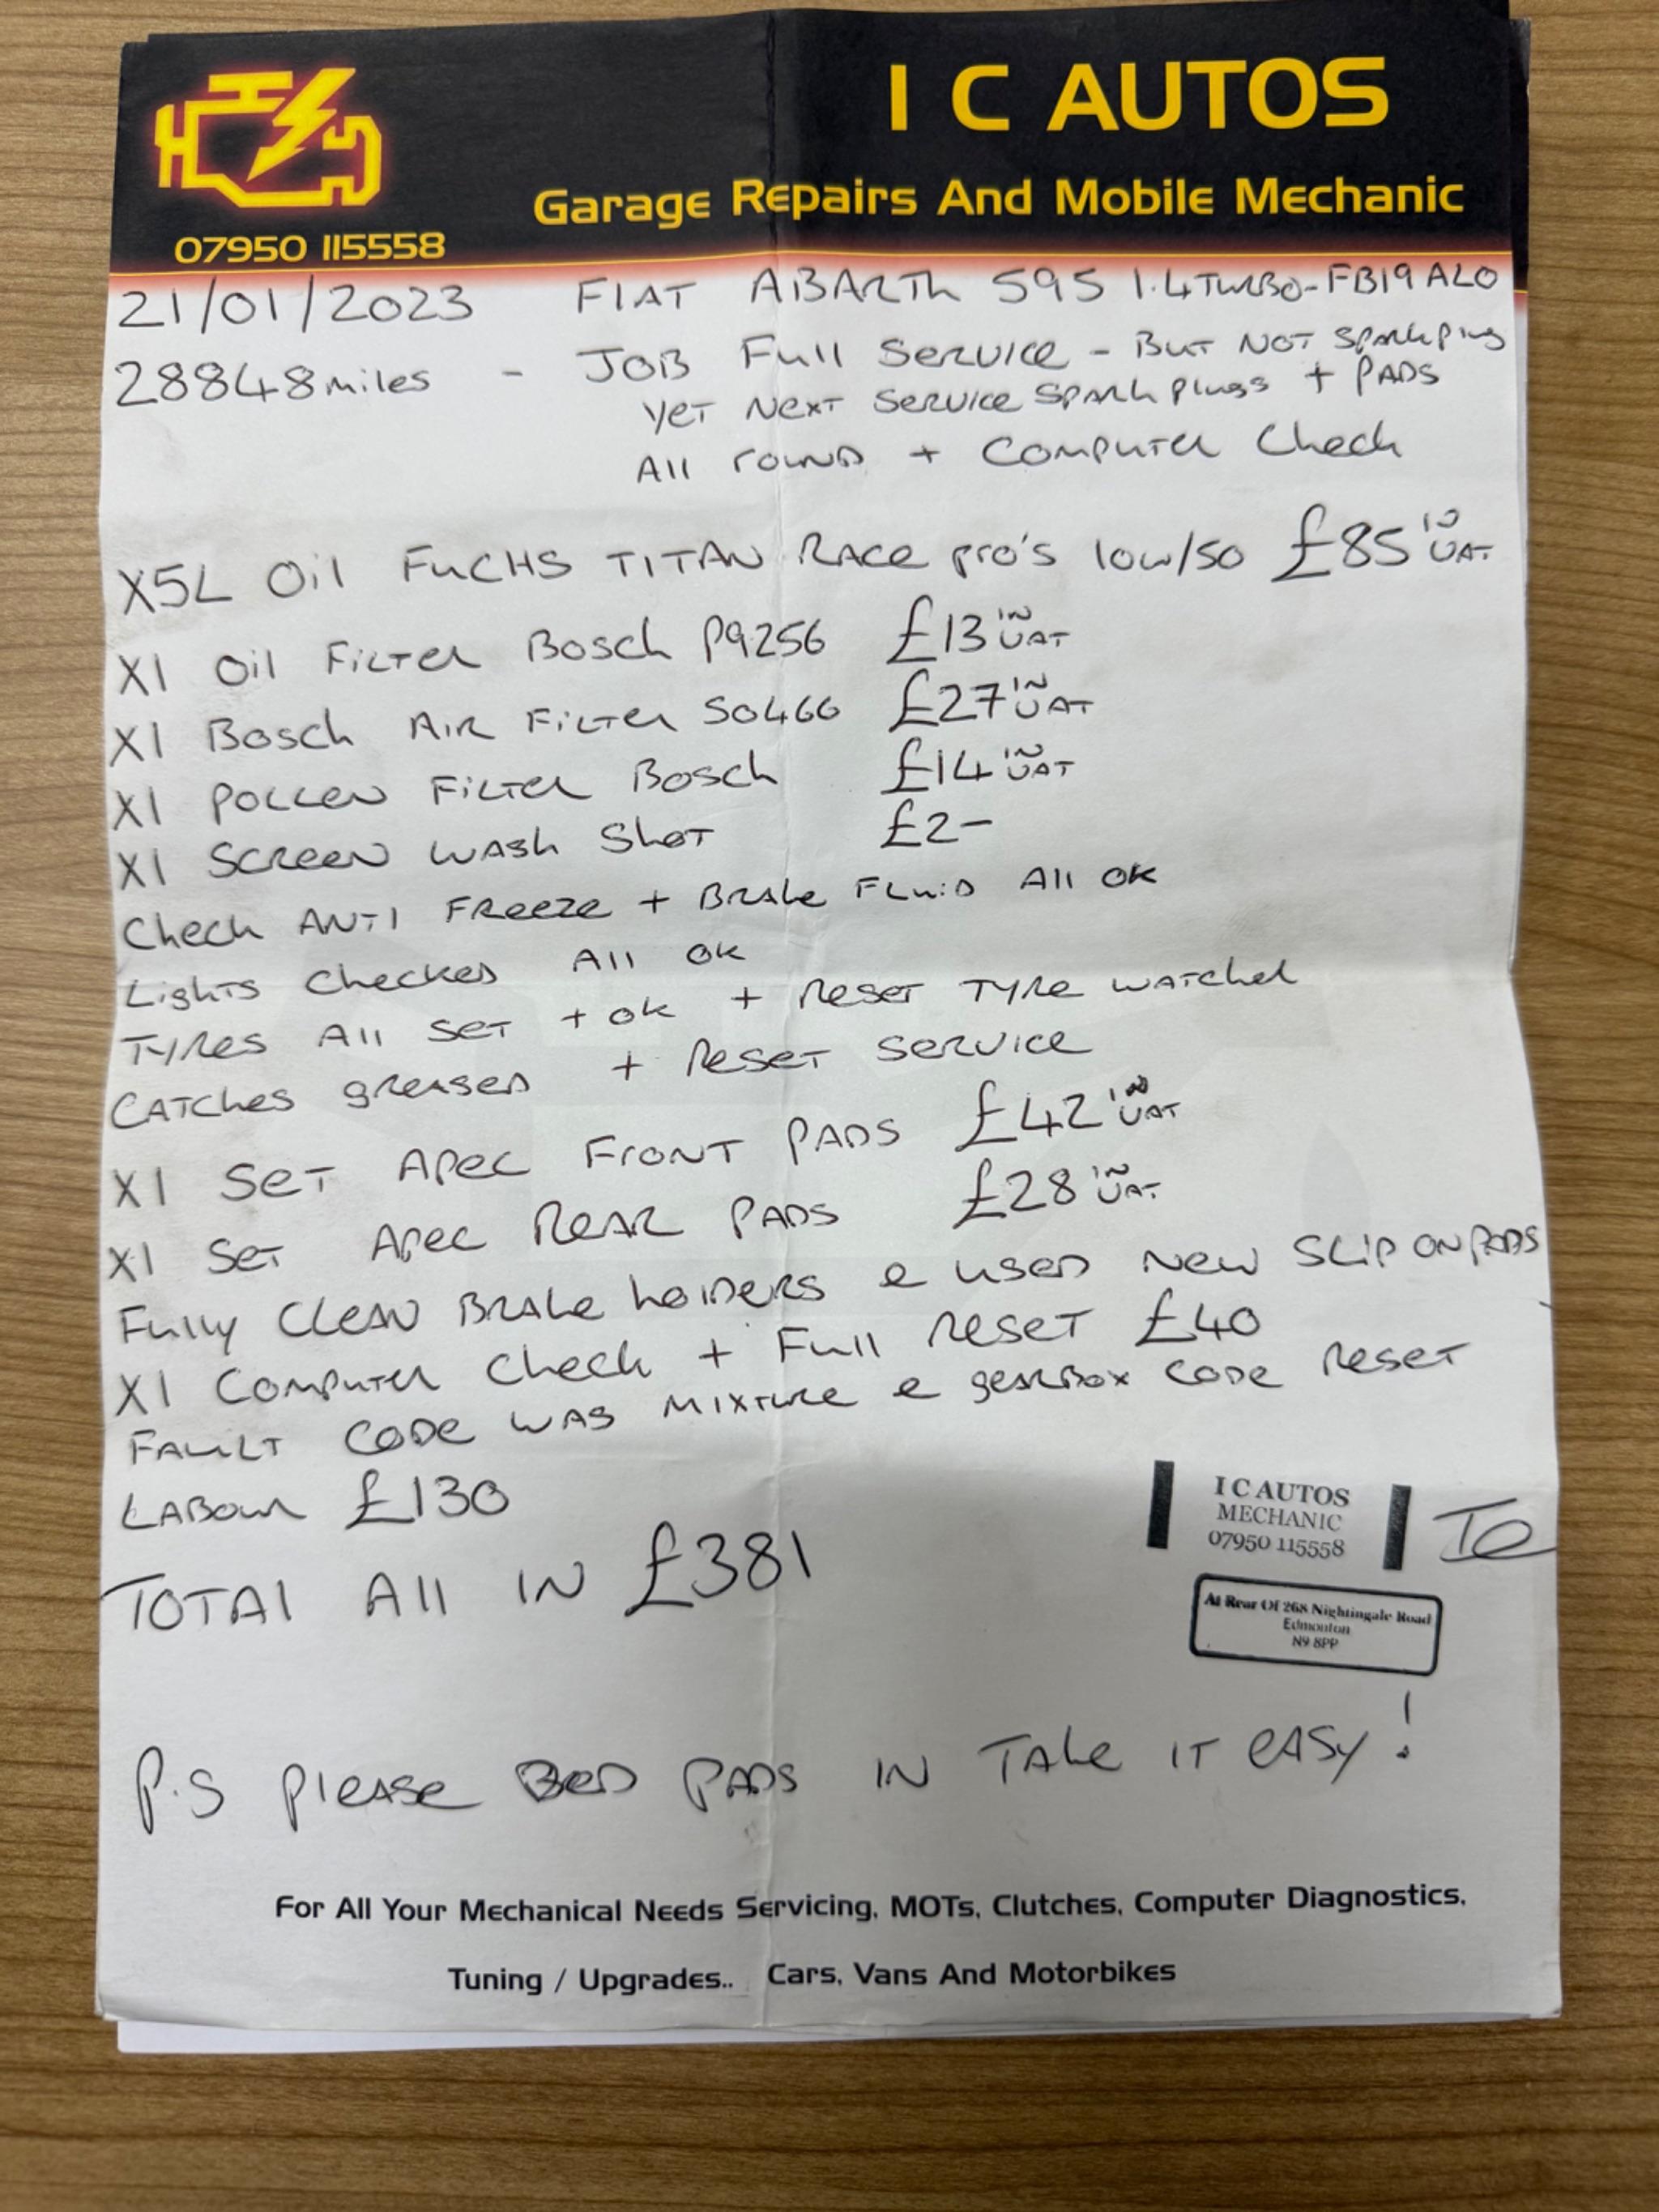 I C AUTOS
Garage Repairs And Mobile Mechanic
07950 115558
21/01/2023 FIAT ABARTH 595 1.4 TURBO - FB19 ALO
28848 miles - JOB Full Service - But NOT Spark plug
yet Next Service Spark plugs + PADS
All round + Computer Check
X5L Oil FUCHS TITAN RACE pro's 10w/50 £85 in VAT
X1 Oil Filter Bosch P9256 £13 in VAT
X1 Bosch Air Filter S0466 £27 in VAT
X1 Pollen Filter Bosch £14 in VAT
X1 Screen Wash Shot £2-
Check Anti Freeze + Brake Fluid All OK
Lights Checked All OK
Tyres All Set + OK + Reset Tyre Watcher
Catches greased + Reset Service
X1 Set Apec Front Pads £42 in VAT
X1 Set Apec Rear Pads £28 in VAT
Fully Clean Brake holders e used New Slip on Pads
X1 Computer Check + Full Reset £40
Fault Code was Mixture e gearbox Code Reset
Labour £130
Total All In £381
I C AUTOS
MECHANIC
07950 115558
At Rear Of 268 Nightingale Road
Edmonton
N9 8PP
P.S please Bed Pads in Take it easy!
For All Your Mechanical Needs Servicing, MOTs, Clutches, Computer Diagnostics.
Tuning / Upgrades.. Cars, Vans And Motorbikes